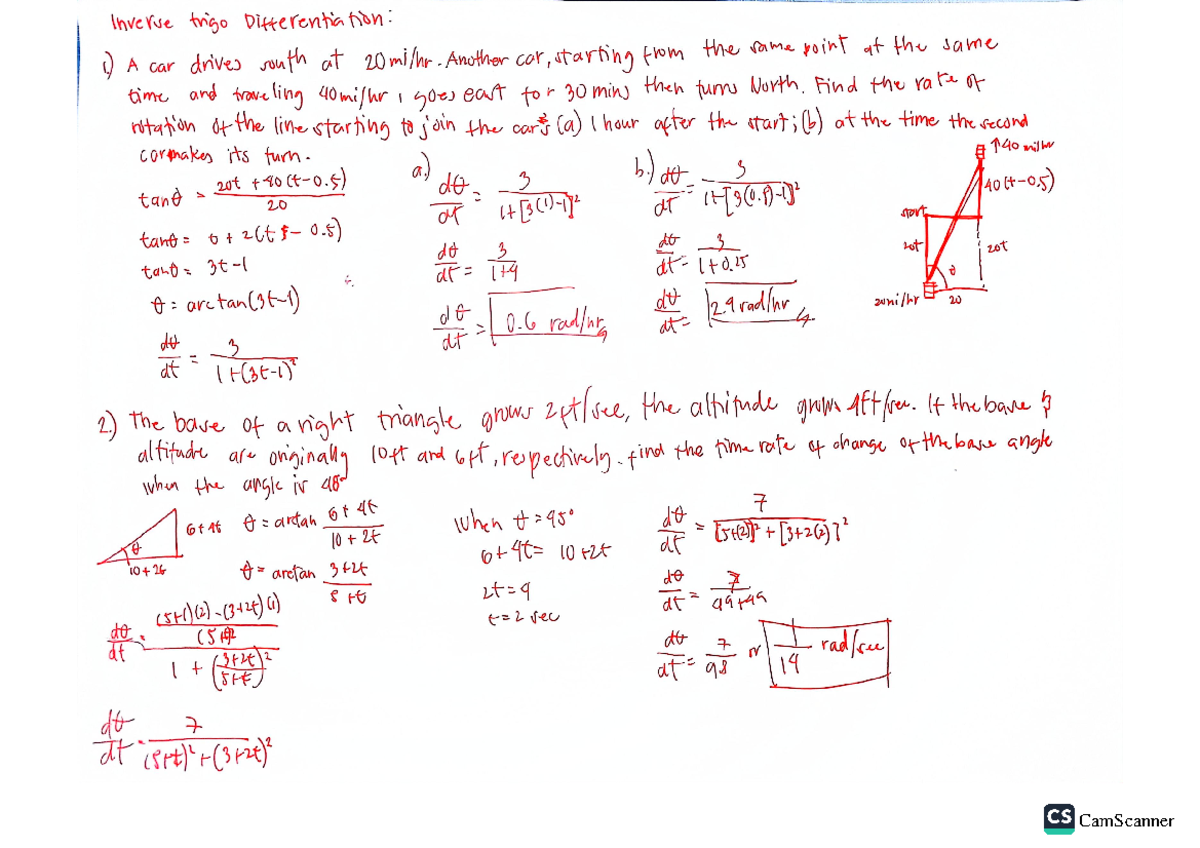 Inverse trigo Differentiation:
1) A car drives south at 20mi/hr. Another car, starting from the same point at the same
time and traveling 40mi/hr, goes east for 30 mins then turns North. Find the rate of
rotation of the line starting to join the cars (a) 1 hour after the start; (b) at the time the second
car makes its turn.
tanθ = 20t + 40(t-0.5) / 20
tanθ = t + 2(t - 0.5)
tanθ = 3t-1
θ = arctan(3t-1)
dθ/dt = 3 / 1+(3t-1)²
a.) dθ/dt = 3 / 1+[3(1)-1]²
dθ/dt = 3 / 1+4
dθ/dt = 0.6 rad/hr
b.) dθ/dt = 3 / 1+[3(0.5)-1]²
dθ/dt = 3 / 1+0.25
dθ/dt = 2.4 rad/hr
↑40 mi/hr
40(t-0.5)
start
20t
20t
θ
20mi/hr
20
2.) The base of a right triangle grows 2ft/sec, the altitude grows 4ft/sec. If the base &
altitude are originally 10ft and 6ft, respectively. find the time rate of change of the base angle
when the angle is 45°
6+4t
θ
10+2t
θ = arctan 6+4t / 10+2t
θ = arctan 3+2t / 5+t
dθ/dt = (5+t)(2)-(3+2t)(1) / (5+t)² / 1 + (3+2t / 5+t)²
dθ/dt = 7 / (5+t)²+(3+2t)²
When θ = 45°
6+4t = 10+2t
2t = 4
t = 2 sec
dθ/dt = 7 / [5+(2)]² + [3+2(2)]²
dθ/dt = 7 / 49+49
dθ/dt = 7/98 or 1/14 rad/sec
CS CamScanner